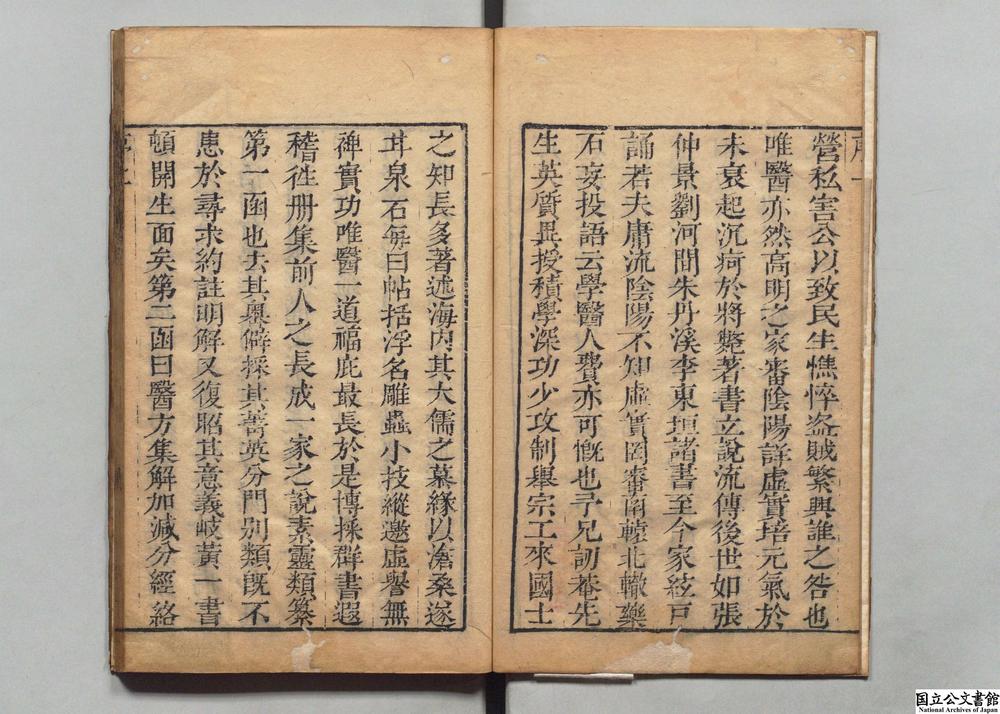 營私害公以致民生憔悴盜賊繁興誰之咎也
唯醫亦然高明之家審陰陽詳虛實培元氣於
未衰起沉疴於將斃著書立說流傳後世如張
仲景劉河間朱丹溪李東垣諸書至今家絃戶
誦若夫庸流陰陽不知虛實罔審南轅北轍藥
石妄投語云學醫人費亦可慨也予兄訒菴先
生英質異授積學深功少攻制舉宗工來國士
之知長多著述海內其大儒之慕緣以滄桑遂
耳泉石每曰帖括浮名雕蟲小技縱邀虛譽無
禆實功唯醫一道福庇最長於是博採群書遐
稽徃册集前人之長成一家之說素靈類纂
第一函也去其奧僻採其菁英分門別類旣不
患於尋求約註明解又復昭其意義岐黃一書
頓開生面矣第二函曰醫方集解加減分經絡
国立公文書館
National Archives of Japan